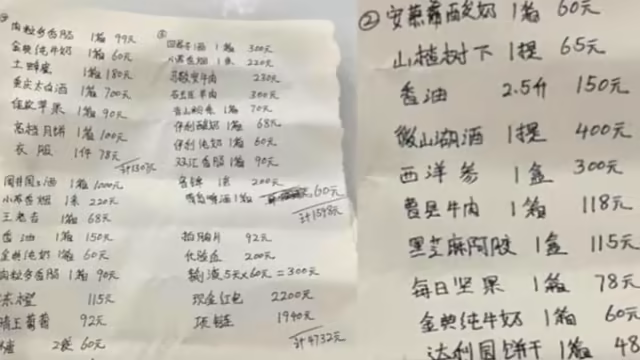 肉粒多香肠 1箱 99元
金典纯牛奶 1箱 60元
土蜂蜜 1箱 180元
1箱 700元
苹果 1箱 90元
高档月饼 1箱 100元
衣服 1件 78元
计1307元
国井国士酒 1箱 1000元
小苏香烟 1条 220元
王老吉 1箱 68元
香油 1箱 150元
金典纯奶 1箱 60元
肉粒多香肠 1箱 90元
115元
葡萄 92元
2袋 60元
③
酒 1箱 300元
小苏香烟 1条 220元
牛肉 230元
羊肉 300元
1箱 70元
伊利酸奶 1箱 68元
伊利纯奶 1箱 60元
双汇香肠 1箱 90元
1条 200元
青岛啤酒 1箱 60元
计1598元
拍胸片 92元
化验血 200元
输液5天×60元=300元
现金红包 2200元
项链 1940元
计4732元
② 安慕希酸奶 1箱 60元
山楂树下 1提 65元
香油 2.5斤 150元
微山湖酒 1提 400元
西洋参 1盒 300元
曹县牛肉 1箱 118元
黑芝麻阿胶 1盒 115元
每日坚果 1箱 78元
金典纯牛奶 1箱 60元
达利园饼干 1箱 48